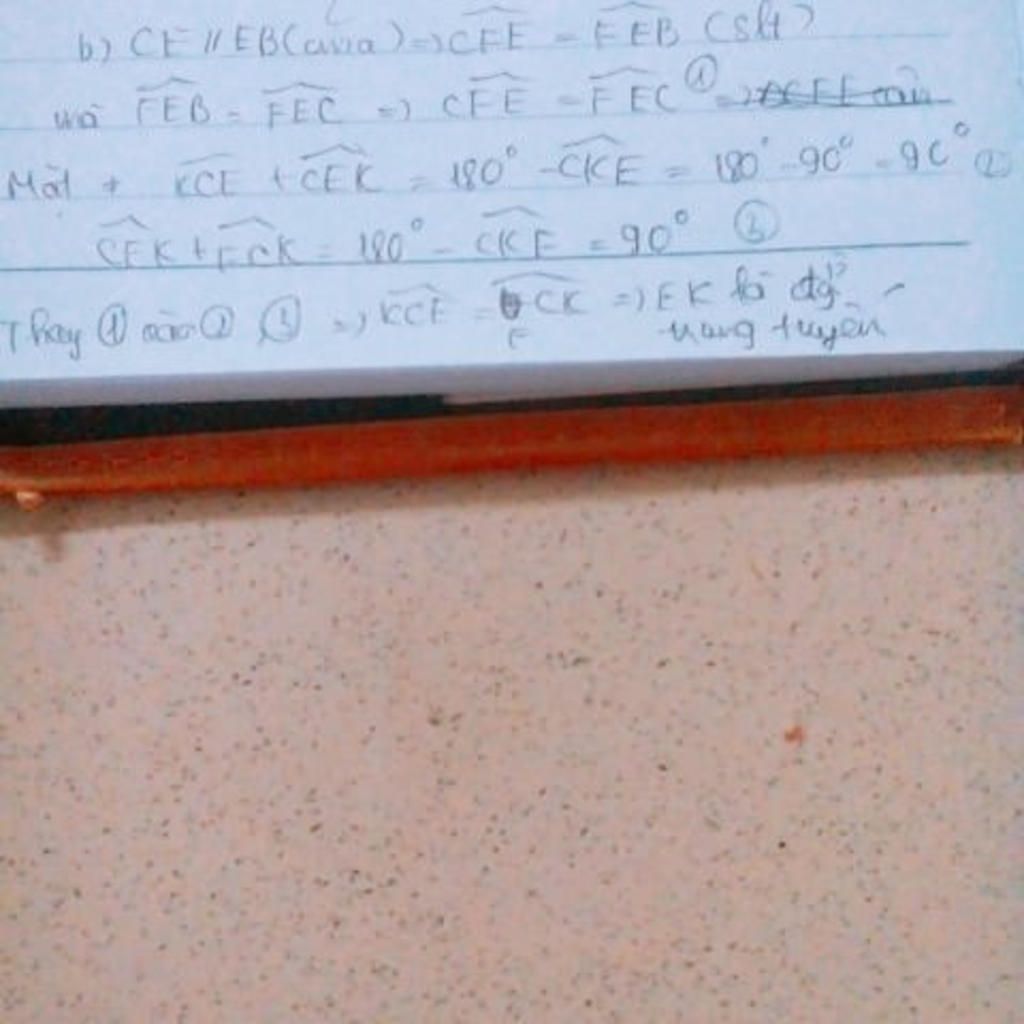 b) CF // EB (cma) => CFE = FEB (slt)
mà FEB = FEC => CFE = FEC ①
Mặt ≠ KCE + CEK = 180° - CKE = 180° - 90° = 90° ②
CFK + FCK = 180° - CKF = 90° ③
Thay ① vào ② ③ => KCE = FCK => EK là đg
trung tuyến